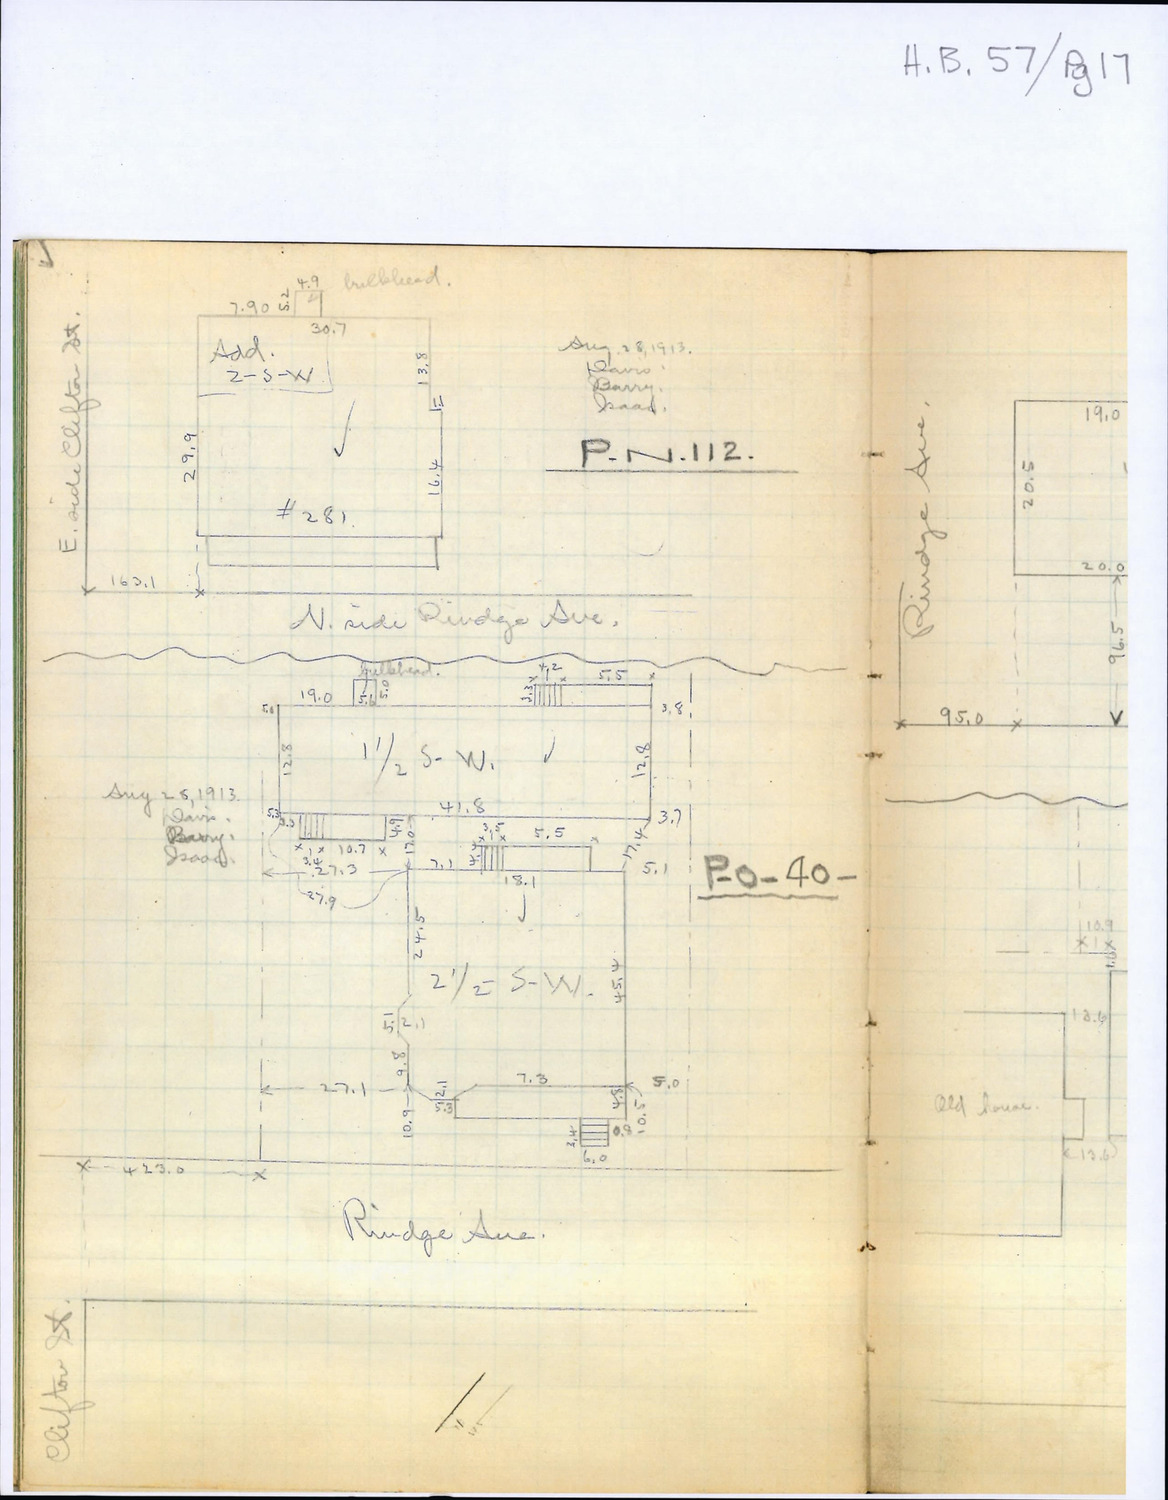 H.B. 57/Pg 17
4.9
bulkhead.
7.90
5.2
30.7
Add.
2-S-W
13.8
Aug. 28, 1913.
Davis.
Barry.
Isaac.
P.N.112.
E. side Clifton St.
29.9
16.4
# 281.
163.1
N. side Rindge Ave.
Rindge Ave.
19.0
20.5
20.0
96.5
95.0
bulkhead.
19.0
5.0
4.2
5.5
3.3
3.8
12.8
1 1/2 S-W.
12.8
41.8
3.7
Aug 28, 1913.
Davis.
Barry.
Isaac.
5.3
4.9
10.7
17.0
5.5
17.4
27.3
7.1
18.1
5.1
27.9
P-0-40-
24.5
2 1/2 S-W.
45.4
5.1
2.1
9.8
27.1
7.3
5.0
2.1
5.3
4.8
10.9
10.5
0.9
3.4
6.0
423.0
Rindge Ave.
Clifton St.
10.9
13.6
Old house.
13.6